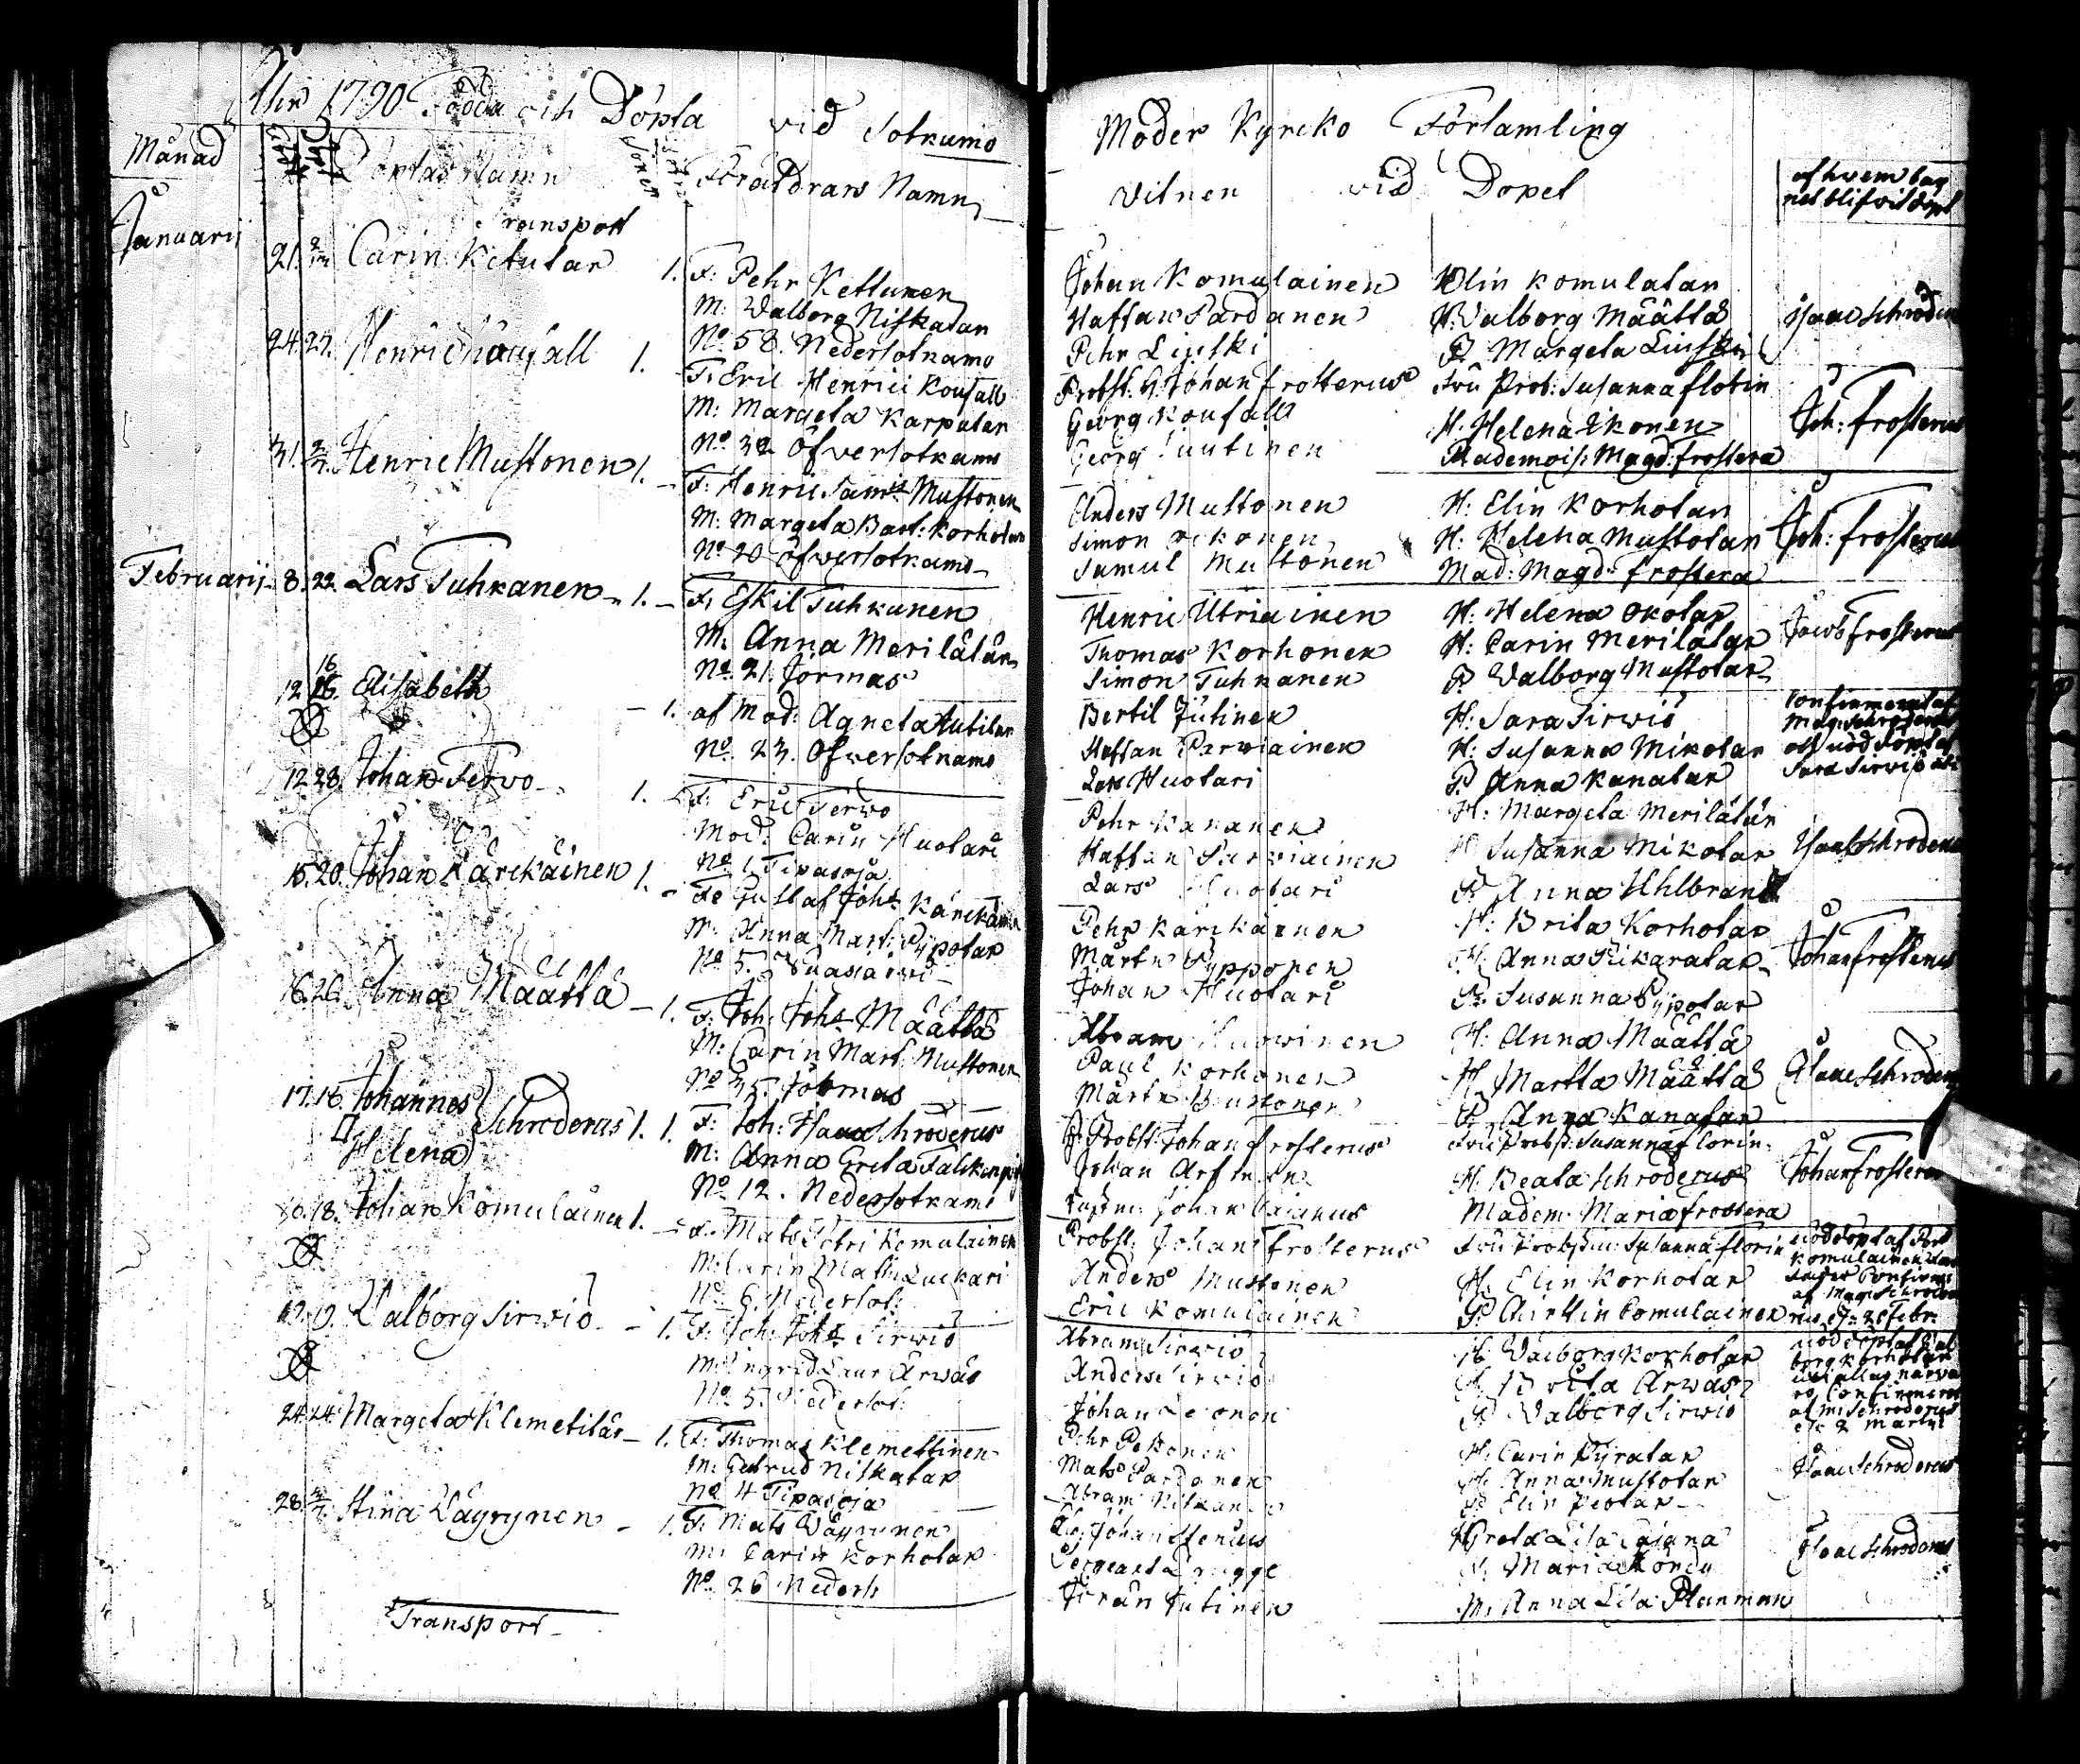 Åhr 1790 Födda och Döpta vid Sotkamo
Moder Kyrcko Församling
Månad
Döptas Namn
Söner
Föräldrars Namn
Vitnen vid Dopet
af hvem bar
net blifvit döpt
Januarij
Transport
21. Carin Ketutar 1.
F: Pehr Kettunen
M: Valborg Niskatar
No 58. Nedersotkamo
Johan Komulainen
Staffan Pardanen
Pehr Luiski
H. Elin Komulatar
H. Valborg Määttä
P. Margeta Luiski
Isaac Schroderus
24. 27. Henric Koufall 1.
F: Eric Henrici Koufall
M: Margeta Karpatar
No 32 Öfversotkamo
Probst. H. Johan Frosterus
Georg Koufall
Georg Juutinen
Fru Prob: Susanna Florin
H. Helena Ikonen
Mademois: Magd: Frostera
Joh: Frosterus
31. 2/2. Henric Mustonen 1.
F: Henric Sam:s Mustonen
M: Margeta Bart: Korhotar
No 20 Öfversotkamo
Anders Mustonen
Simon
Samul Mustonen
H: Elin Korhotar
H: Helena Mustotar
Mad: Magd: Frostera
Joh: Frosterus
Februarij 8. 22. Lars Tuhkanen 1.
F: Eskil Tuhkunen
M: Anna Merilätär
No 21. Jormas
Henric Utriainen
Thomas Korhonen
Simon Tuhkanen
H: Helena Okotar
H: Carin Merilätär
P. Valborg Mustotar
Jacob Frosterus
12. 16. Elisabeth 1.
af Mod: Agneta Autitar
No. 23. Öfversotkamo
Bertil Jutinen
Staffan Parviainen
Lars Huotari
H: Sara Sirviö
H: Susanna Mikotar
P. Anna Kanatar
Confirmerat af
Mag: Schroderus
och nöddöpt af
Sara Sirviö
12. 28. Johan Tervo 1.
F: Eric Tervo
Mod: Carin Huotari
No 1 Tipasoja
Pehr Kananen
Staffan Parviainen
Lars Huotari
H: Margeta Merilätär
H. Susanna Mikotar
P. Anna Uhlbrand
Isaac Schroderus
15. 20. Johan Kärckäinen 1.
F: Gustaf Joh:s Kärckäinen
M: Anna Mart: Pypotar
No 5.
Pehr Kärckäinen
Mårtn Pypponen
Johan Huotari
H: Brita Korhotar
H. Anna Pikaratar
P: Susanna Pypotar
Johan Frosterus
16. 26. Anna Määttä 1.
F: Joh: Joh:s Määttä
M: Carin Mart: Mustonen
No 35. Jormas
Abram
Paul Korhonen
Mårtn Mustonen
H: Anna Määttä
H. Martta Määttä
P. Anna Kanatar
Isaac Schroderus
17. 18. Johannes
Helena
Schroderus 1. 1.
F: Joh: Isaac Schroderus
M: Anna Greta
No 12. Nedersotkamo
H. Probst: Johan Frosterus
Johan
Johan Cajanus
Fru Probst: Susanna Florin
H. Beata Schroderus
Madem. Maria Frostera
Johan Frosterus
18. Johan Komulainen 1.
F: Mats Petri Komulainen
M: Carin Mats: Luckari
No 6. Nedersot:
Probst: Johan Frosterus
Anders Mustonen
Eric Komulainen
Fru Probstin: Susanna Florin
H. Elin Korhotar
P. Comulainen
nöddöpt af
Komulainen
af Mag: Schroderus
19. Valborg Sirviö 1.
F: Joh: Joh:s Sirviö
M: Ingrid Laur: Ärwäs
No. 5. Nedersot:
Abram Sirviö
Anders Sirviö
Johan
H. Valborg Korhotar
H. Brita Ärwäs
P. Valborg Sirviö
nöddöpt af Val
borg Korhotar
Confirmerat
af M: Schroderus
2 Martii
24. 24. Margeta Klemetitär 1.
F: Thomas Klemettinen
M: Gertrud Niskatar
No 4 Tipasoja
Pehr Pekonen
Mats Pardanen
Abram
H. Carin Pyratar
H. Anna Mustotar
P. Elin
Isaac Schroderus
28. Stina Väyrynen 1.
F: Mats Väyrynen
M: Carin Korhotar
No. 26 Nedersot
Johan Stenius
Sergeant
Göran Jutinen
H. Greta Lisa Cajana
P. Maria
M. Anna Lisa Planman
Isaac Schroderus
Transport